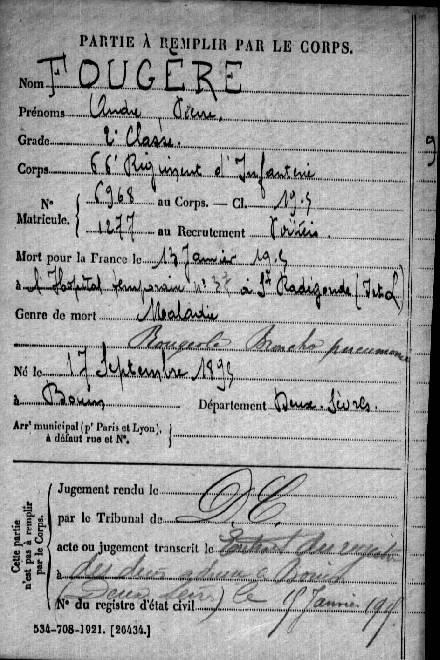 PARTIE À REMPLIR PAR LE CORPS.
Nom FOUGÈRE
Prénoms André Pierre
Grade 2e Classe.
Corps 66e Régiment d'Infanterie
N° Matricule. { 6968 au Corps. — Cl. 1915
1277 au Recrutement Poitiers
Mort pour la France le 13 Janvier 1915
à l'Hôpital temporaire n° 37 à Ste Radegonde (I et L)
Genre de mort Maladie
Rougeole Broncho pneumonie
Né le 17 Septembre 1895
à Bouin Département Deux-Sèvres.
Arrt municipal (pr Paris et Lyon), à défaut rue et N°. {
Cette partie n'est pas à remplir par le Corps.
Jugement rendu le D.C.
par le Tribunal de
acte ou jugement transcrit le Extrait du registre
à des décès adressé à Bouin
(Deux Sèvres) le 15 Janvier 1915
N° du registre d'état civil
534-708-1921. [26434.]
9